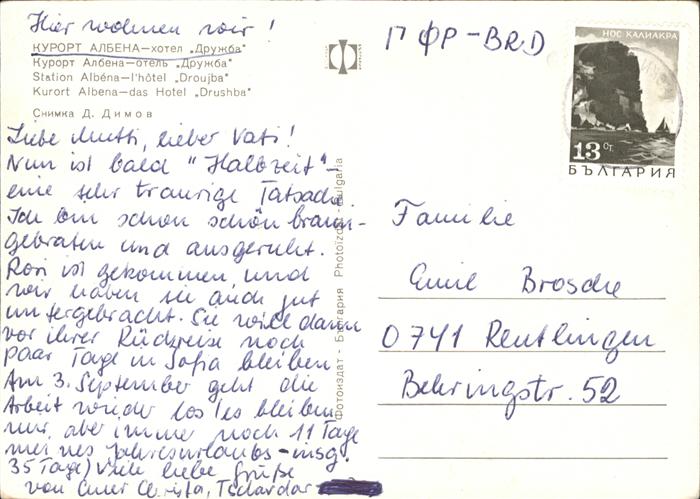 Hier wohnen wir!
КУРОРТ АЛБЕНА—хотел „Дружба"
Курорт Албена—отель „Дружба"
Station Albéna—l'hôtel „Droujba"
Kurort Albena—das Hotel „Drushba"
Снимка Д. Димов
Liebe Mutti, lieber Vati!
Nun ist bald "Halbzeit"-
eine sehr traurige Tatsache.
Ich bin schon schön braun-
gebraten und ausgeruht.
Rosi ist gekommen und
wir haben sie auch gut
untergebracht. Sie will dann
vor ihrer Rückreise noch
paar Tage in Sofia bleiben.
Am 3. September geht die
Arbeit wieder los (es bleiben
mir aber immer noch 11 Tage
meines Jahresurlaubs-insg.
35 Tage) Viele liebe Grüße
von Eurer Christa, Tschavdar
Фотоиздат - България Photoizdat - Bulgaria
ПФР-BRD
НОС КАЛИАКРА
13 СТ.
БЪЛГАРИЯ
Familie
Emil Brosche
0741 Reutlingen
Behringstr. 52